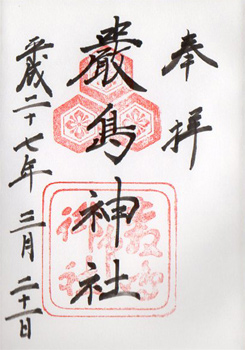 奉拝
嚴島神社
平成二十七年三月二十一日